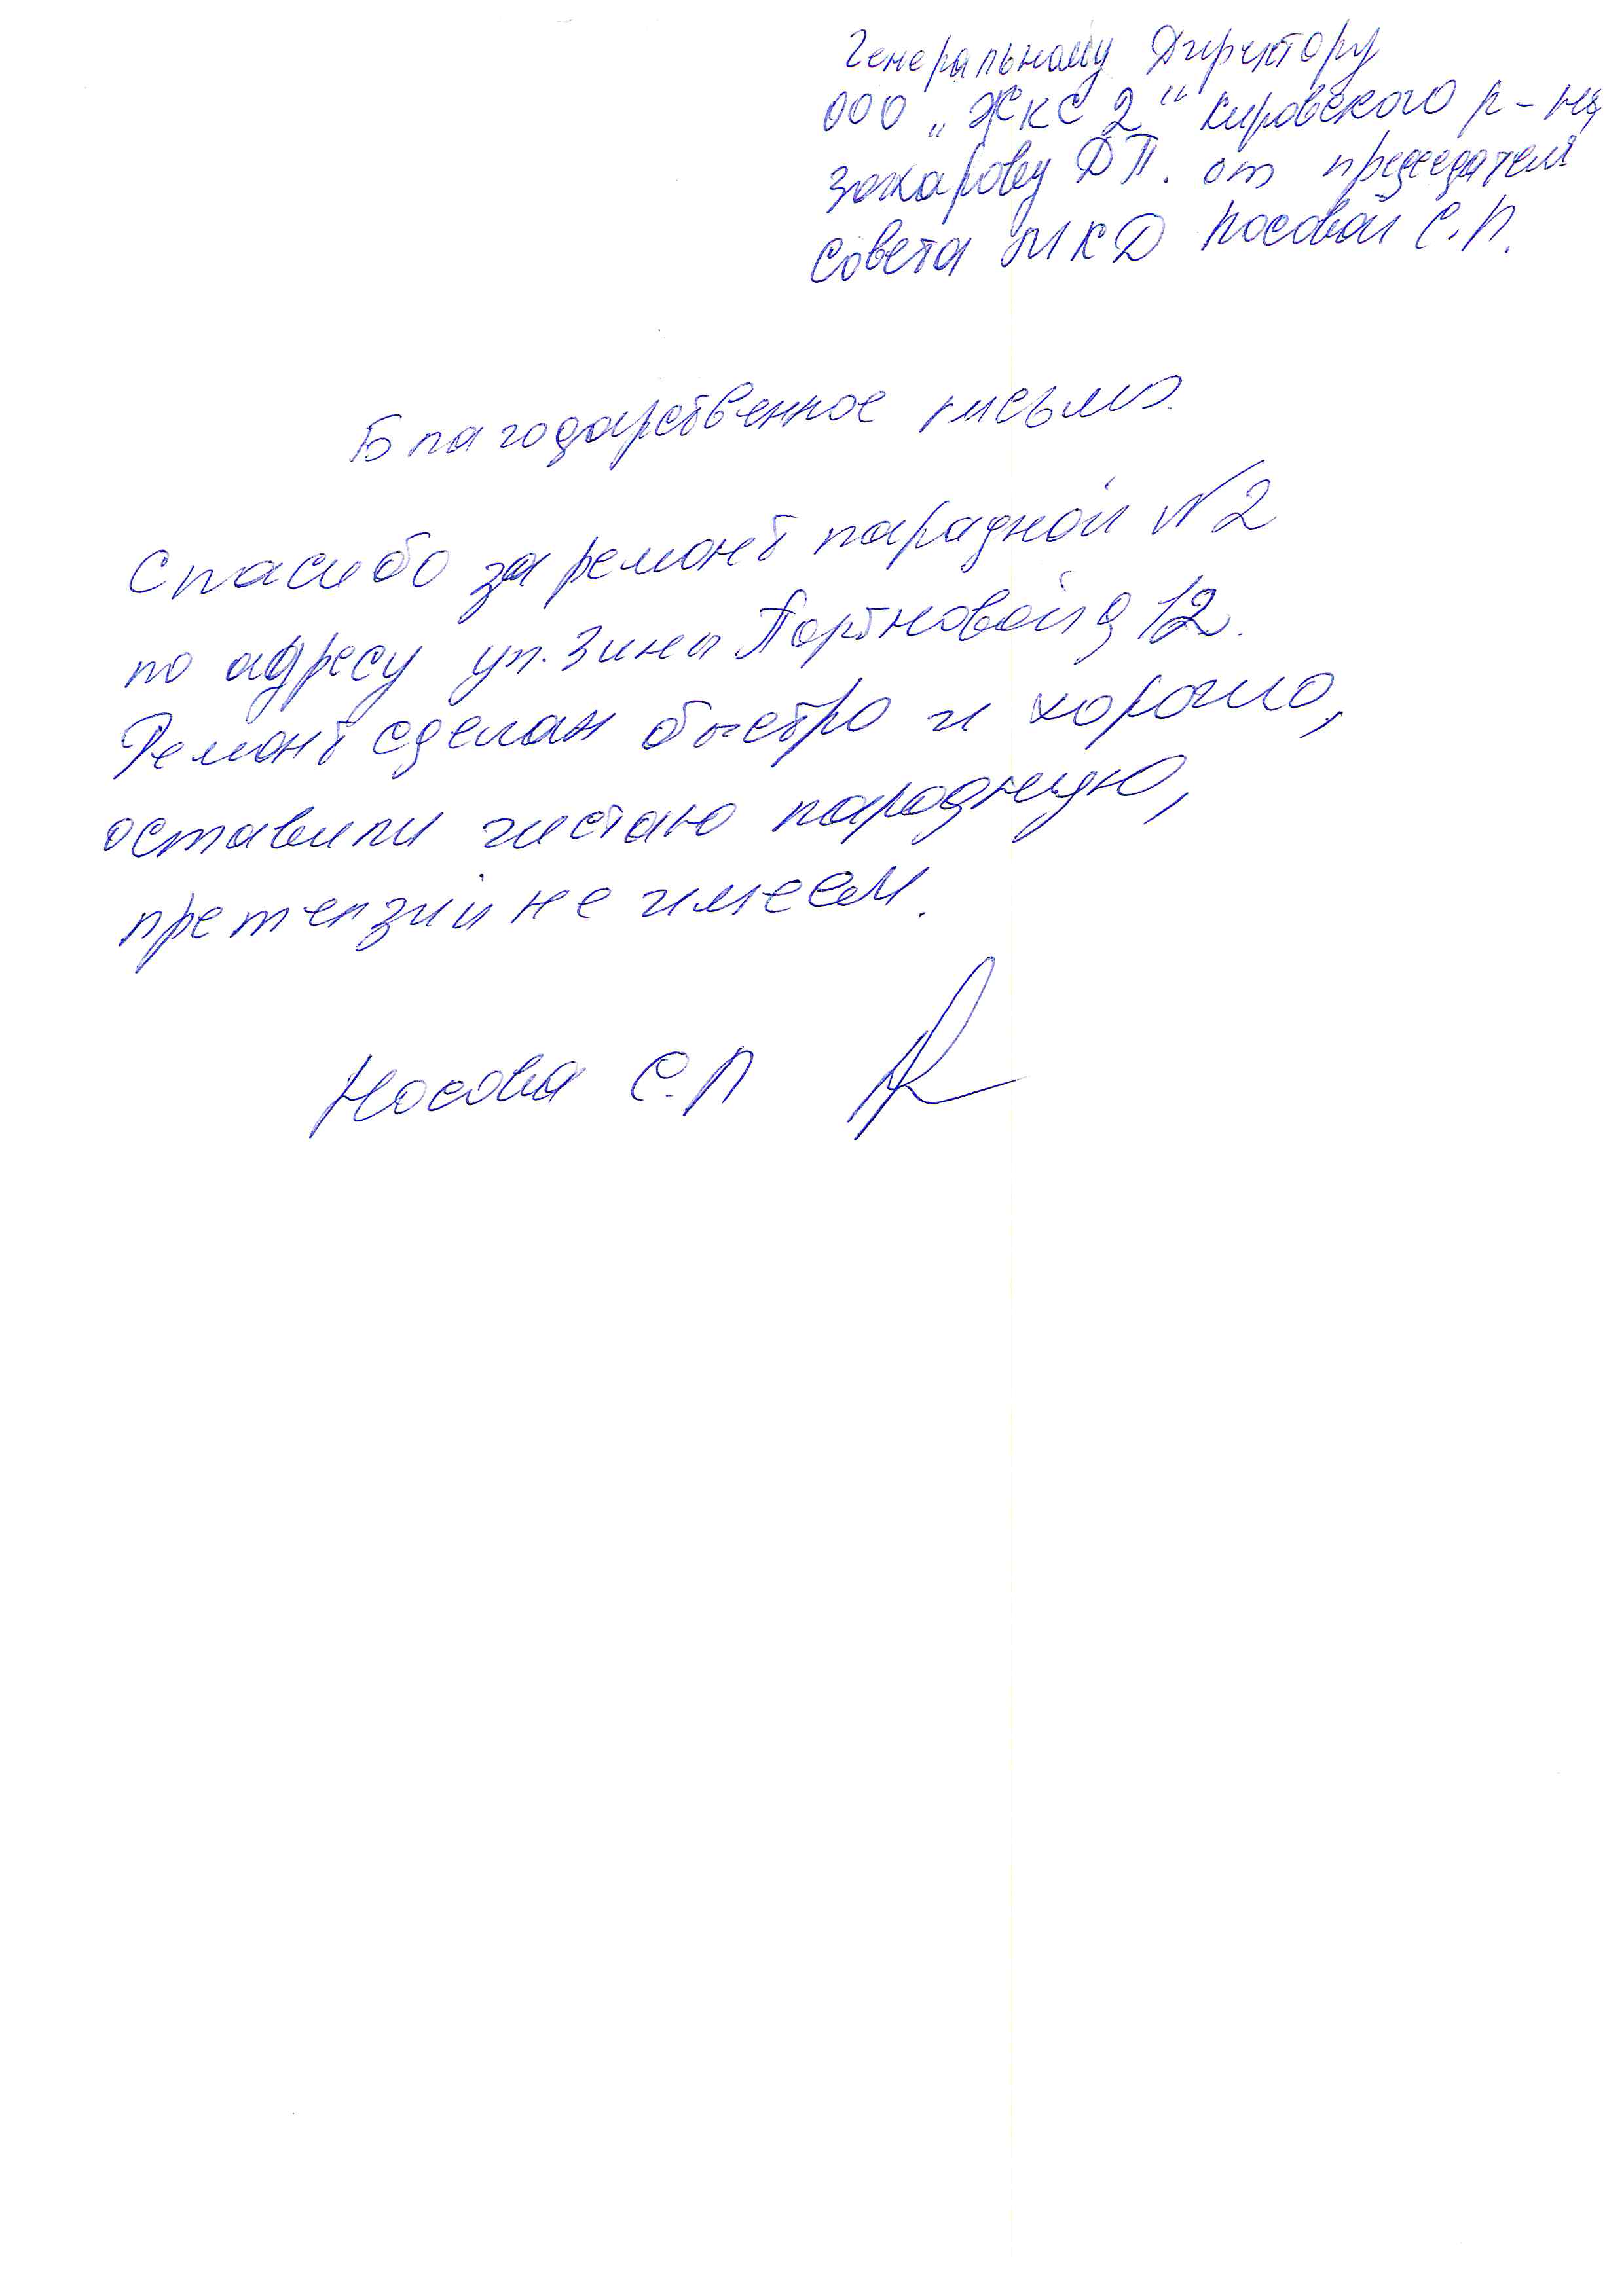 Генеральному Директору
ООО „ЖКС 2“ Кировского р-на
Захарову Д.П. от председателя
совета МКД Носовой С.П.
Благодарственное письмо.
Спасибо за ремонт парадной N2
по адресу ул. Зины Портновой д 12.
Ремонт сделан быстро и хорошо,
оставили чистою парадную,
претензий не имеем.
Носова С.П